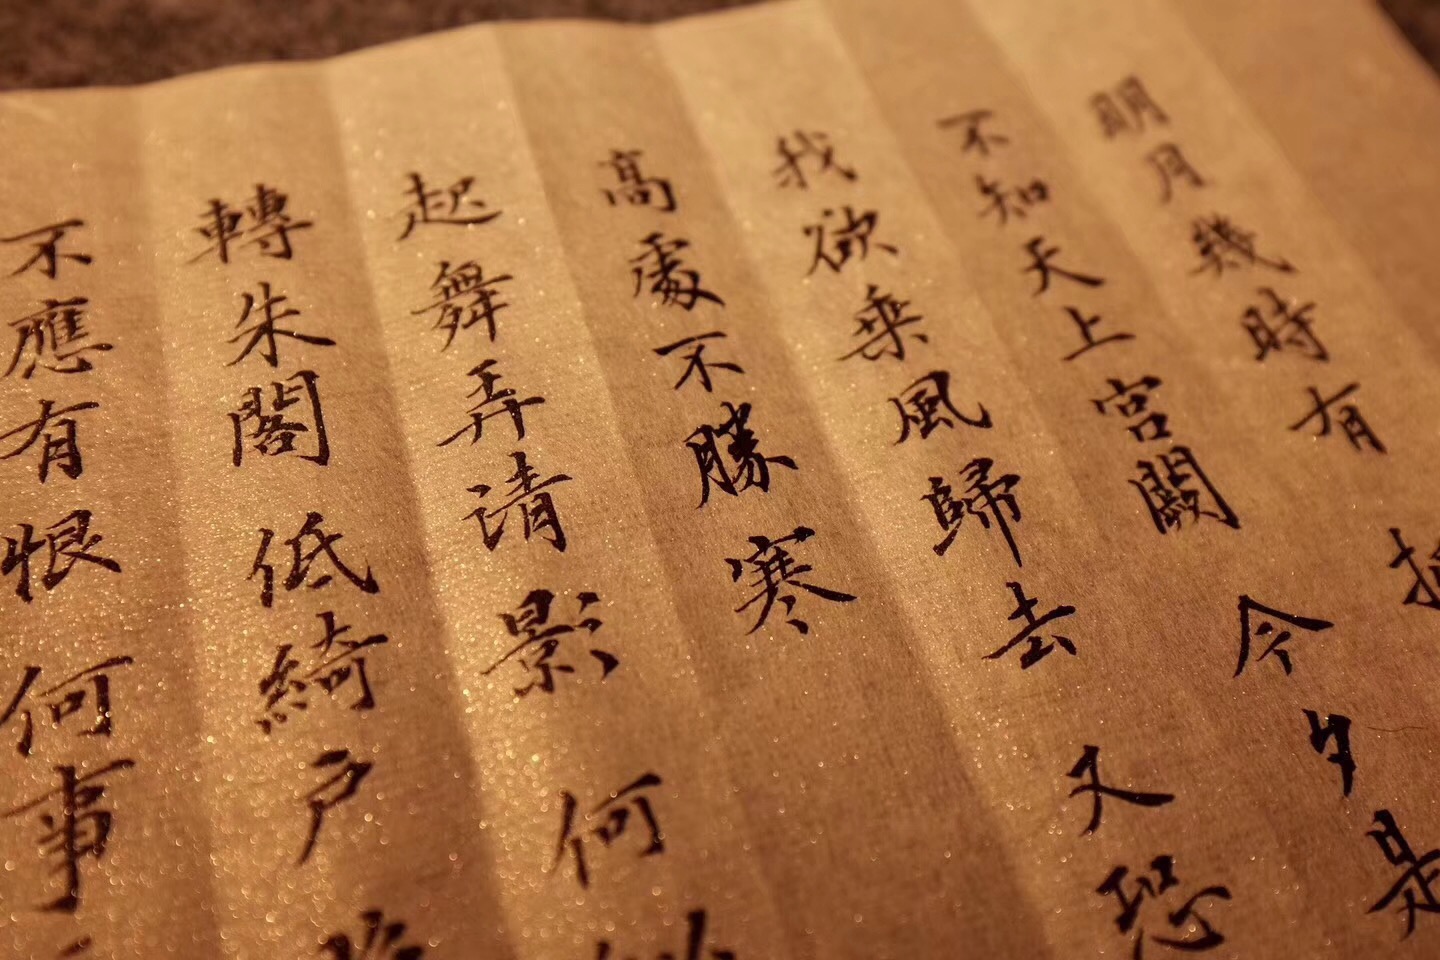 明月幾時有
不知天上宮闕 今夕是
我欲乘風歸去 又恐
高處不勝寒
起舞弄清影 何
轉朱閣 低綺戶
不應有恨 何事